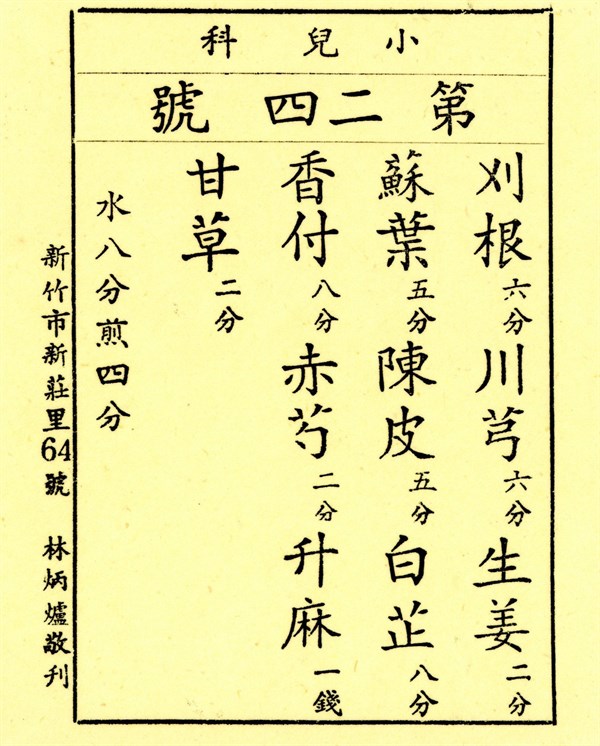 小兒科
第二四號
刈根六分川芎六分生姜二分
蘇葉五分陳皮五分白芷八分
香付八分赤芍二分升麻一錢
甘草二分
水八分煎四分
新竹市新莊里64號 林炳爐敬刊